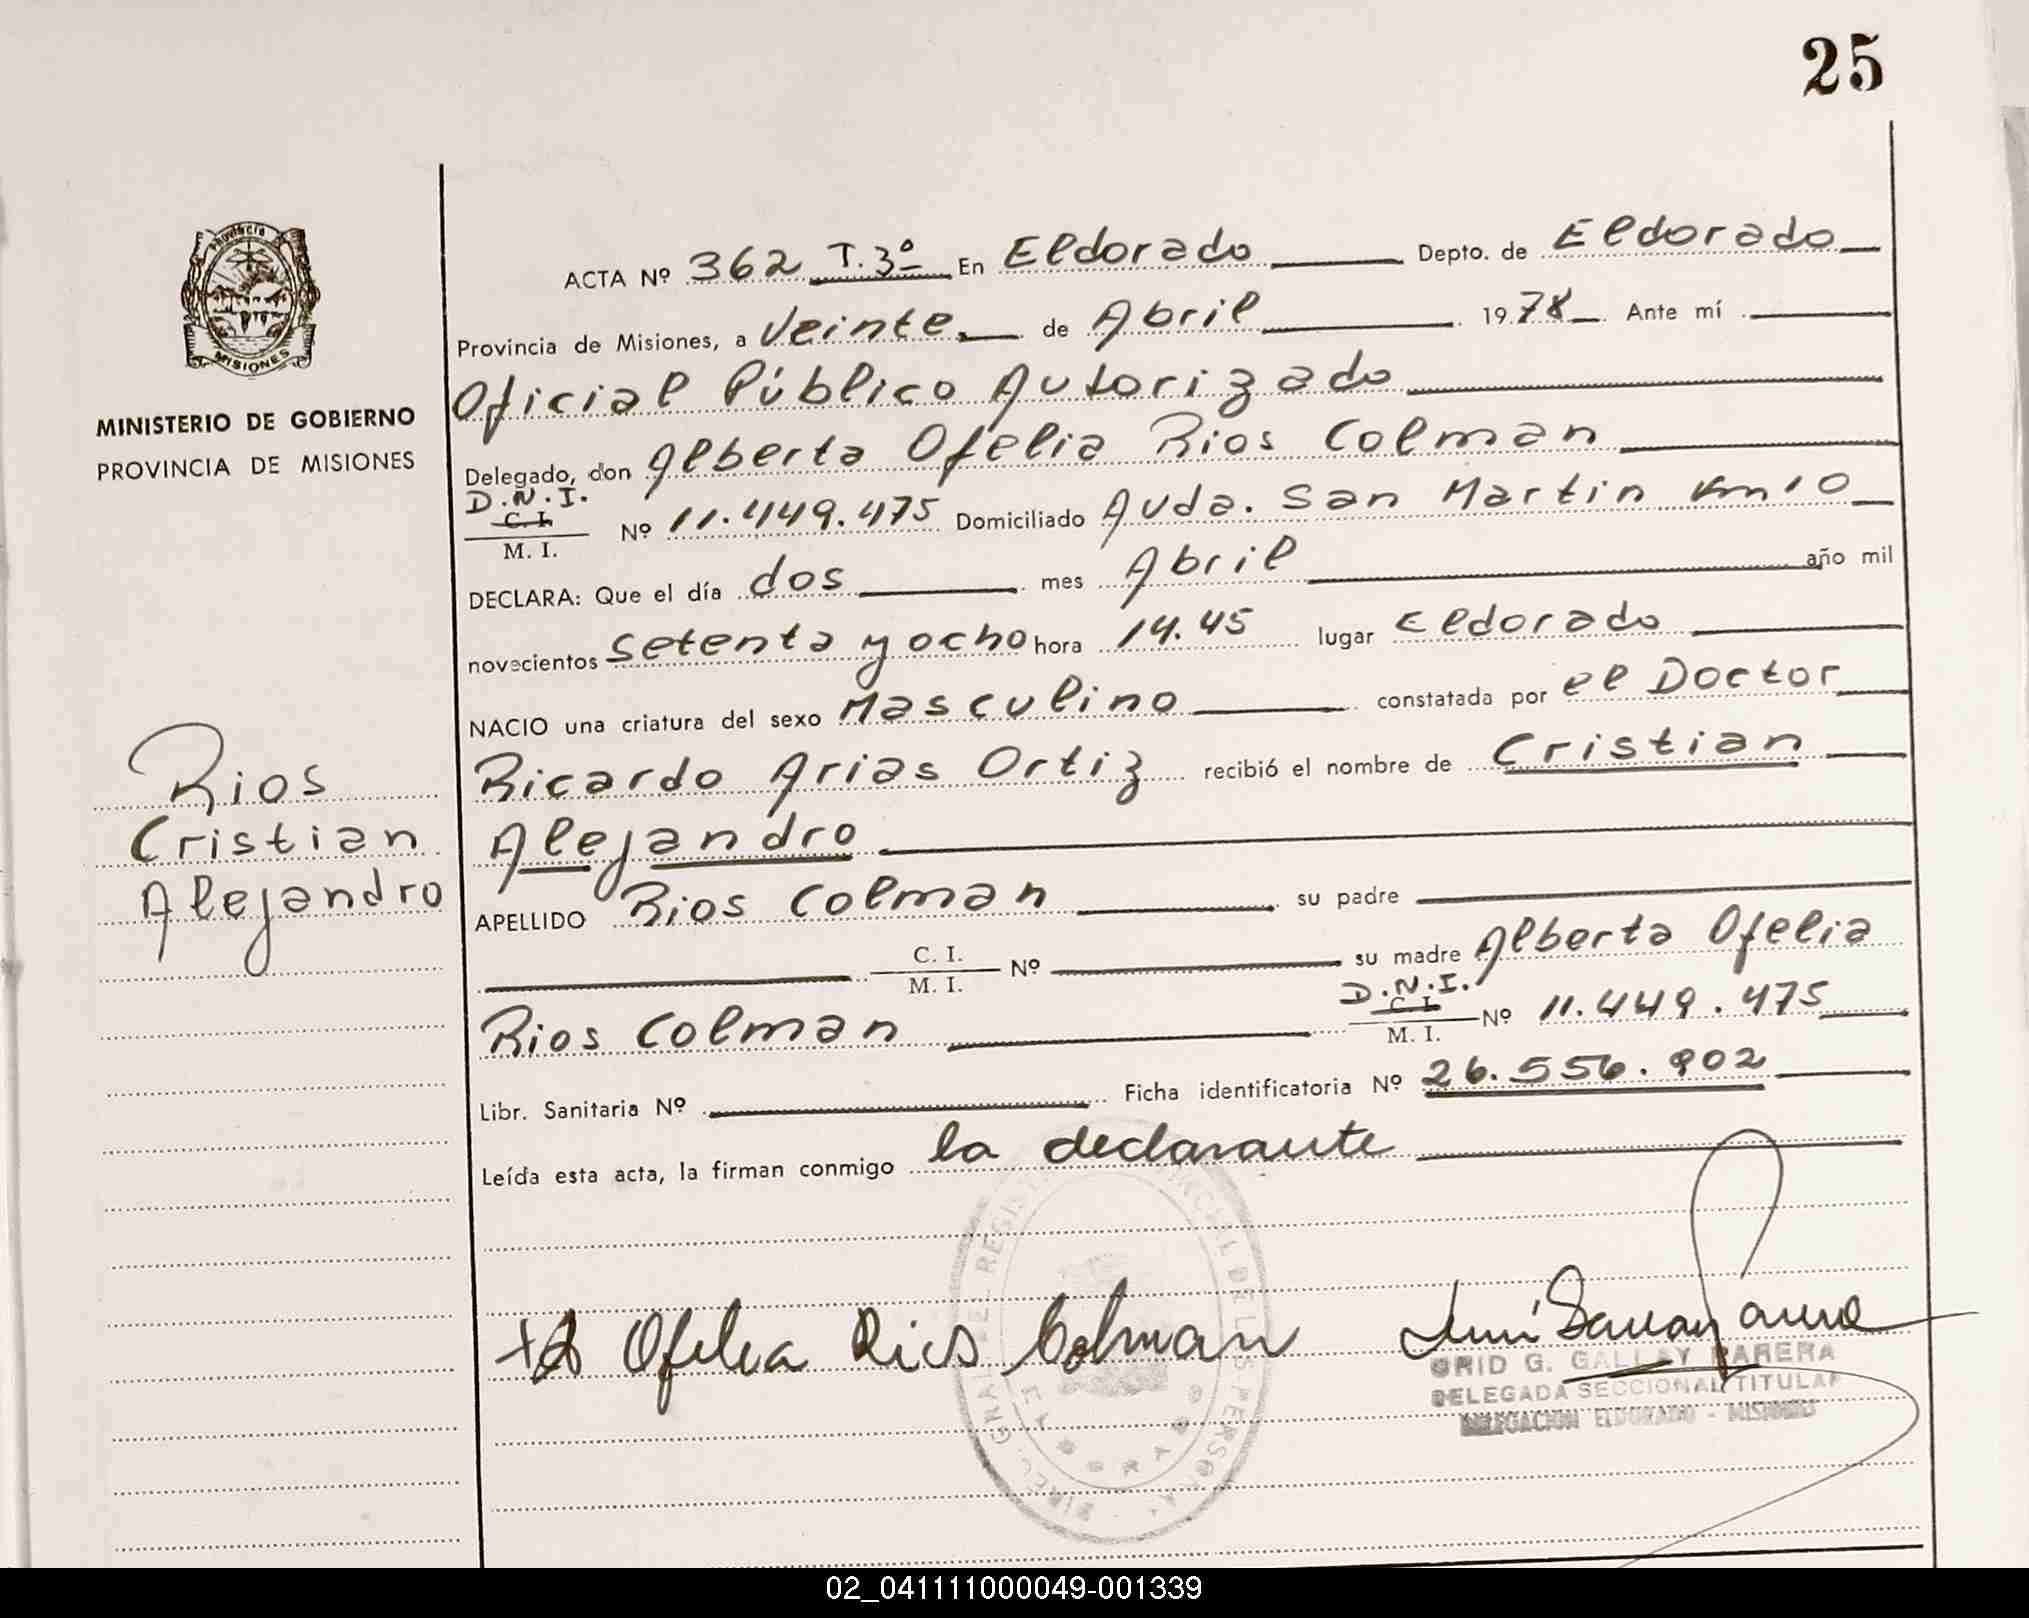 25
Provincia
MISIONES
MINISTERIO DE GOBIERNO
PROVINCIA DE MISIONES
ACTA Nº 362 T.3º En Eldorado Depto. de Eldorado
Provincia de Misiones, a Veinte de Abril 1978 Ante mí
Oficial Público Autorizado
Delegado, don Alberta Ofelia Rios Colman
D.N.I.
C. I.
M. I. Nº 11.449.475 Domiciliado Avda. San Martin Km 10
DECLARA: Que el día dos mes Abril año mil
novecientos setenta y ocho hora 14.45 lugar Eldorado
NACIO una criatura del sexo Masculino constatada por el Doctor
Ricardo Arias Ortiz recibió el nombre de Cristian
Alejandro
Rios
Cristian
Alejandro
APELLIDO Rios Colman su padre
C. I.
M. I. Nº su madre Alberta Ofelia
Rios Colman D.N.I.
C. I.
M. I. Nº 11.449.475
Libr. Sanitaria Nº Ficha identificatoria Nº 26.556.902
Leída esta acta, la firman conmigo la declarante
Ofelia Rios Colman
G. GALLAY PARERA
DELEGADA SECCIONAL TITULAR
DELEGACION ELDORADO - MISIONES
02_041111000049-001339